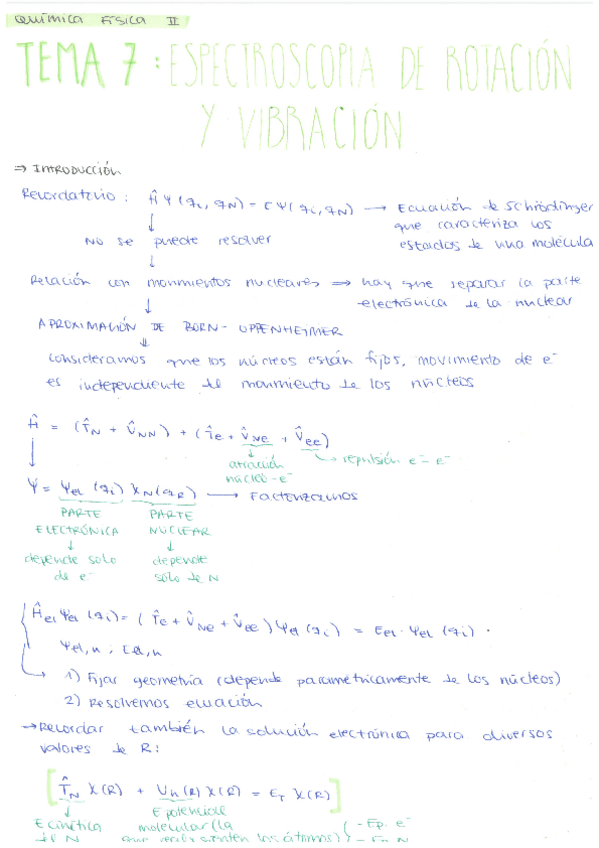 QUÍMICA FÍSICA II
TEMA 7: ESPECTROSCOPIA DE ROTACIÓN
Y VIBRACIÓN
⇒ INTRODUCCIÓN
Recordatorio: Ĥ Ψ(qi, qN) = E Ψ(qi, qN) → Ecuación de Schrödinger
que caracteriza los
estados de una molécula
↓
No se puede resolver
↓
Relación con movimientos nucleares ⇒ hay que separar la parte
electrónica de la nuclear
↓
APROXIMACIÓN DE BORN-OPPENHEIMER
⇓
Consideramos que los núcleos están fijos, movimiento de e⁻
es independiente del movimiento de los núcleos
Ĥ = (T̂N + V̂NN) + (T̂e + V̂Ne + V̂ee)
atracción
núcleo-e⁻
repulsión e⁻-e⁻
Ψ = Ψel(qi) χN(qR) → Factorizamos
PARTE ELECTRÓNICA
PARTE NUCLEAR
depende solo
de e⁻
depende
solo de N
Ĥel Ψel(qi) = (T̂e + V̂Ne + V̂ee) Ψel(qi) = Eel · Ψel(qi) ·
Ψel,n ; Eel,n
1) Fijar geometría (depende paramétricamente de los núcleos)
2) Resolvemos ecuación
→ Recordar también la solución electrónica para diversos
valores de R:
[T̂N χ(R) + Un(R) χ(R) = ET χ(R)]
E cinética
E potencial
molecular (la
que sienten los átomos)
- Ep. e⁻